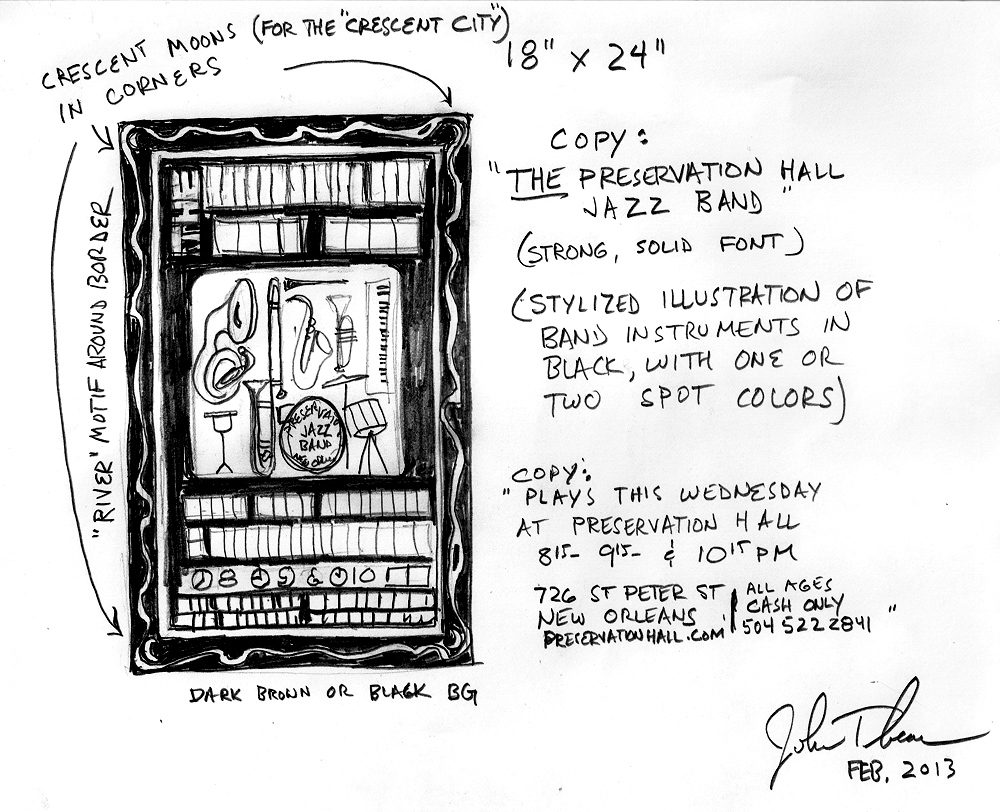 CRESCENT MOONS (FOR THE "CRESCENT CITY")
IN CORNERS
18" x 24"
"RIVER" MOTIF AROUND BORDER
COPY:
"THE PRESERVATION HALL
JAZZ BAND"
(STRONG, SOLID FONT)
(STYLIZED ILLUSTRATION OF
BAND INSTRUMENTS IN
BLACK, WITH ONE OR
TWO SPOT COLORS)
JAZZ
BAND
NEW
8 9 & 10
COPY:
"PLAYS THIS WEDNESDAY
AT PRESERVATION HALL
8 15- 9 15- & 10 15 PM
726 ST PETER ST
NEW ORLEANS
PRESERVATIONHALL.COM
ALL AGES
CASH ONLY
504 522 2841 "
DARK BROWN OR BLACK BG
John
FEB. 2013